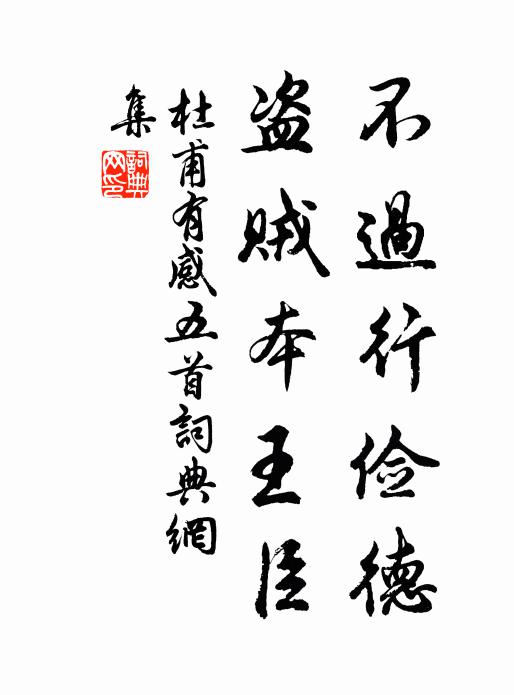 不過行俭德
盗贼本王臣
杜甫有感五首詞典網
集
詞典
网印